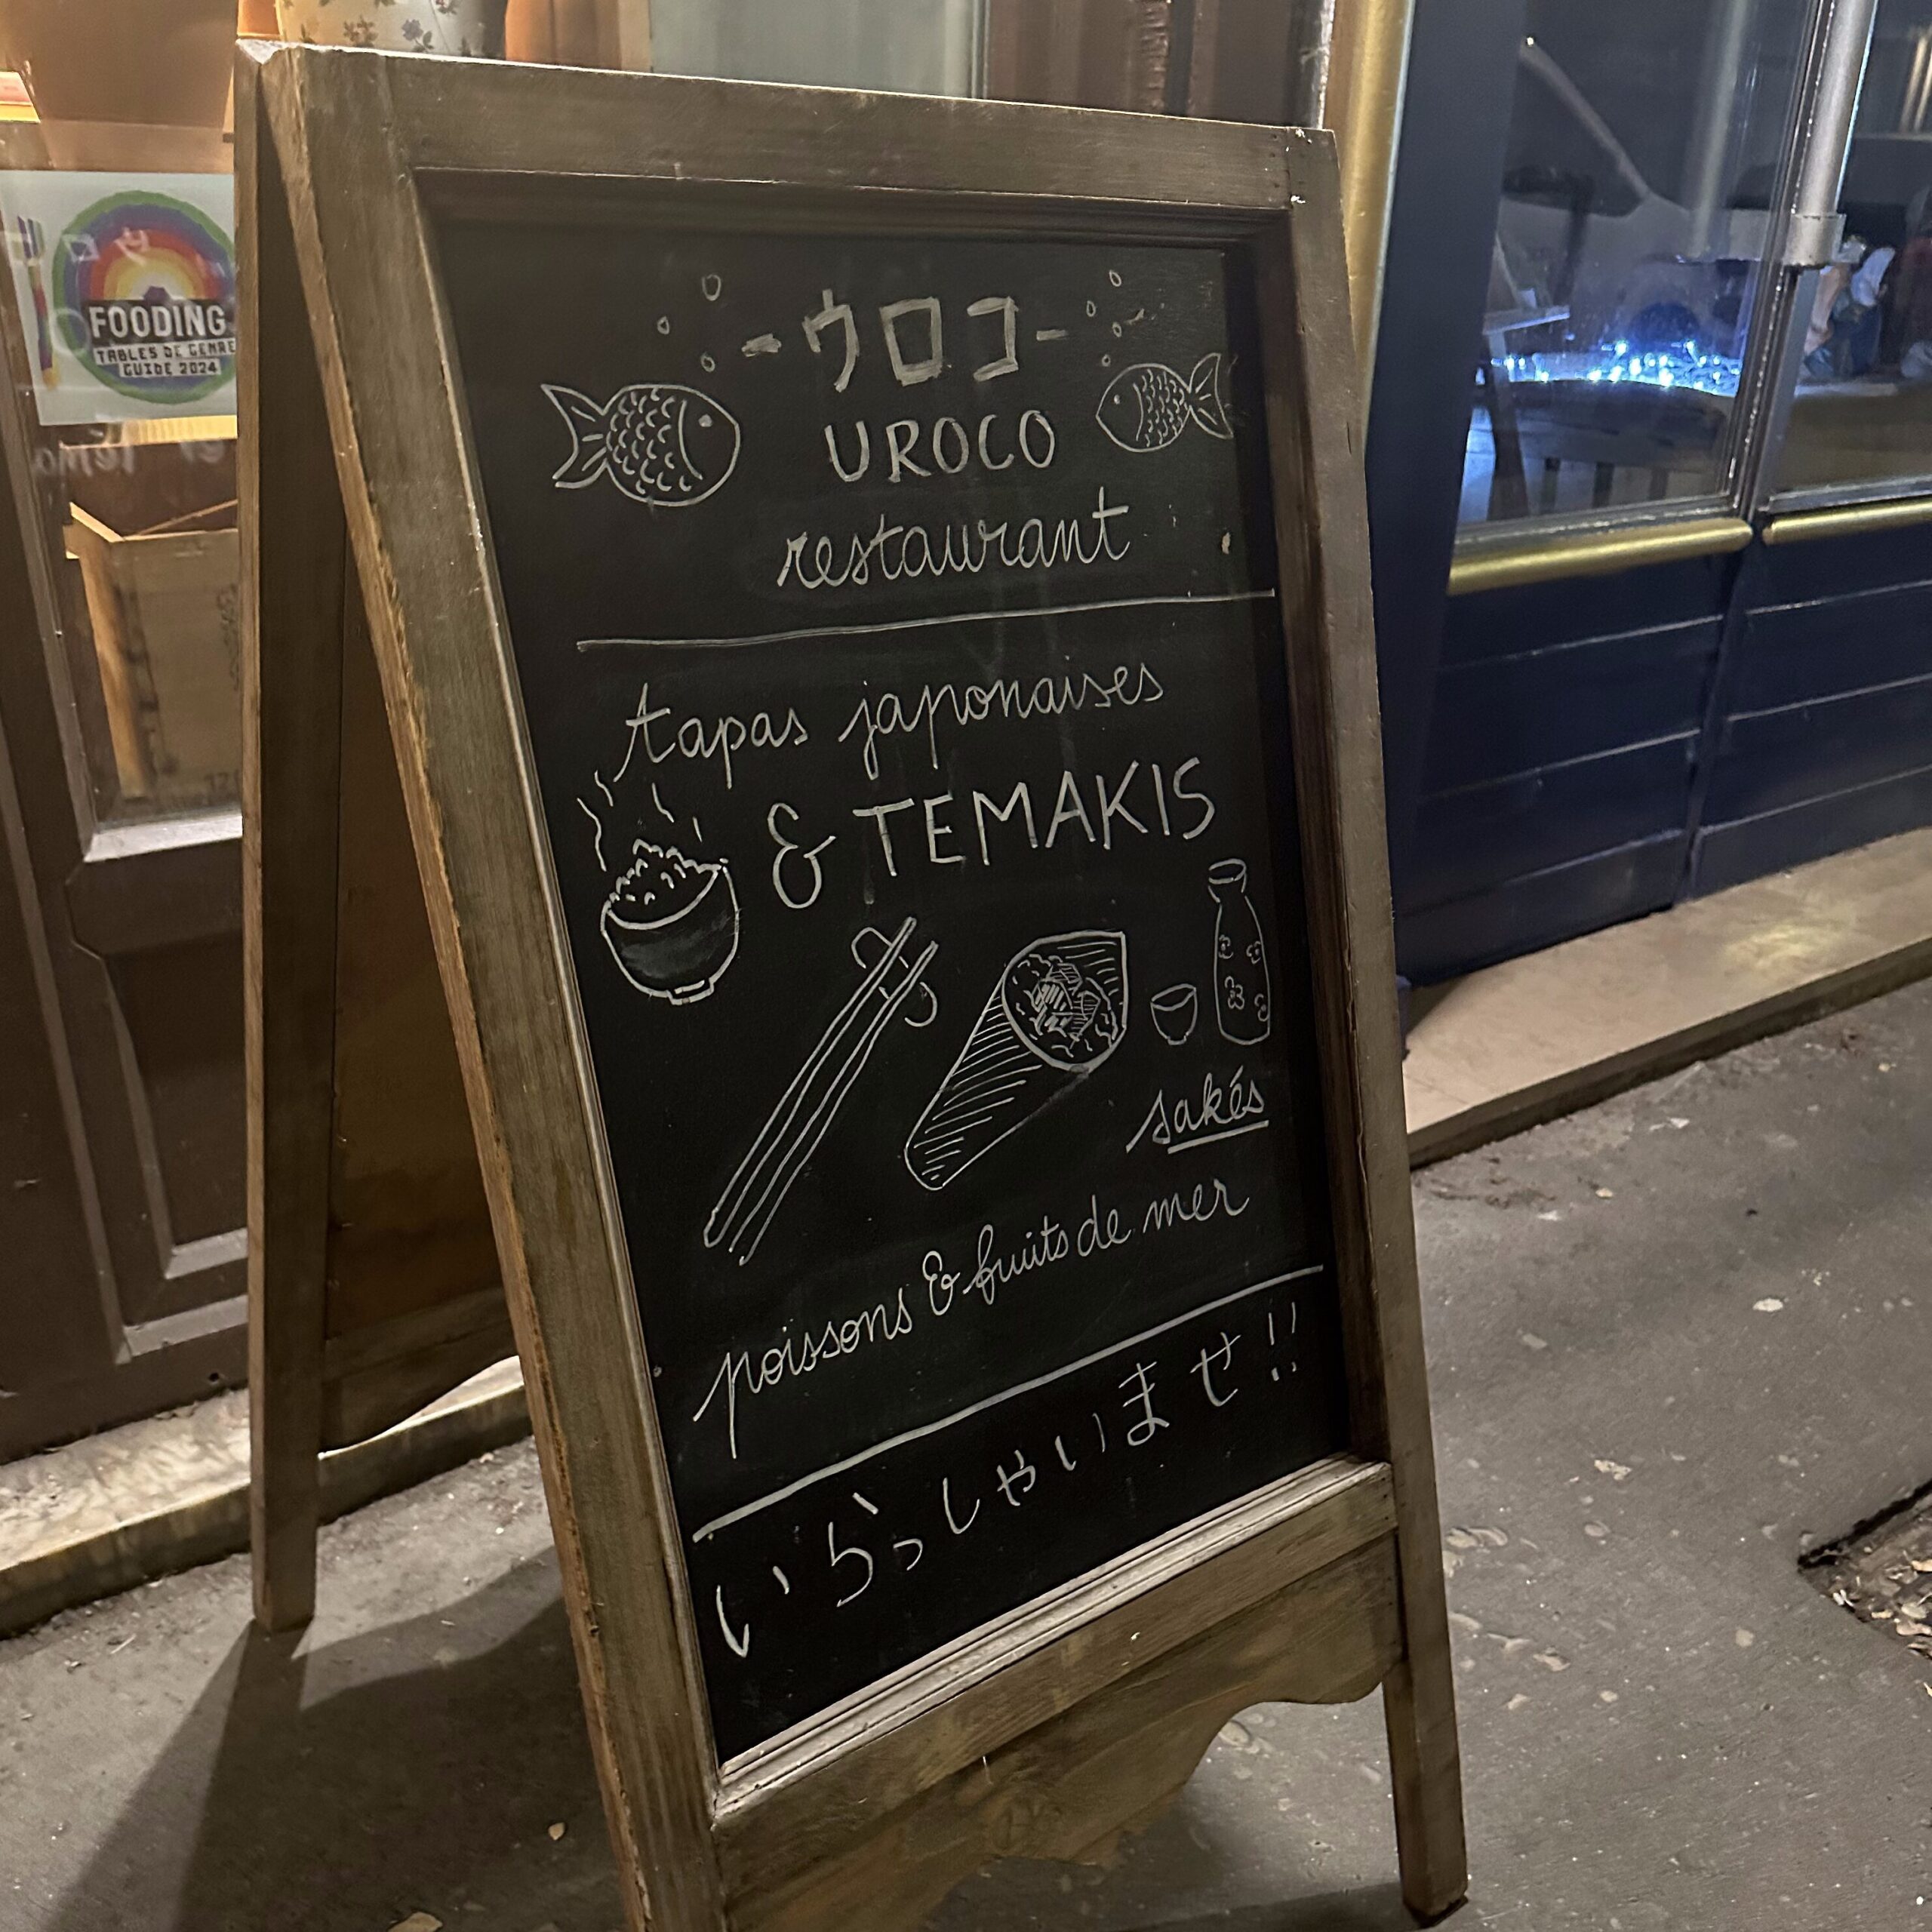 FOODING
TABLES DE GENRE
GUIDE 2024
-ウロコ-
UROCO
restaurant
tapas japonaises
& TEMAKIS
sakés
poissons & fruits de mer
いらっしゃいませ!!